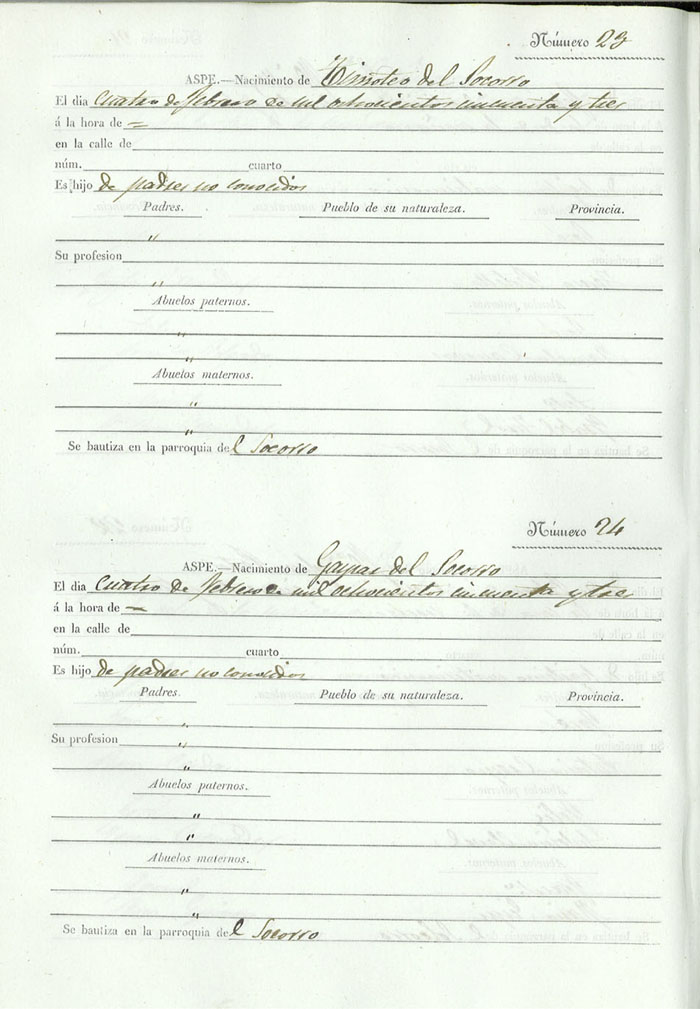 Número 23
ASPE.—Nacimiento de Timoteo del Socorro
El dia cuatro de febrero de mil ochocientos cincuenta y tres
á la hora de =
en la calle de
núm. cuarto
Es hijo de padres no conocidos
Padres. Pueblo de su naturaleza. Provincia.
"
Su profesion
"
Abuelos paternos.
"
"
Abuelos maternos.
"
"
Se bautiza en la parroquia del Socorro
Número 24
ASPE.—Nacimiento de Gaspar del Socorro
El dia cuatro de febrero de mil ochocientos cincuenta y tres
á la hora de =
en la calle de
núm. cuarto
Es hijo de padres no conocidos
Padres. Pueblo de su naturaleza. Provincia.
"
Su profesion "
"
Abuelos paternos.
"
"
Abuelos maternos.
"
"
Se bautiza en la parroquia del Socorro